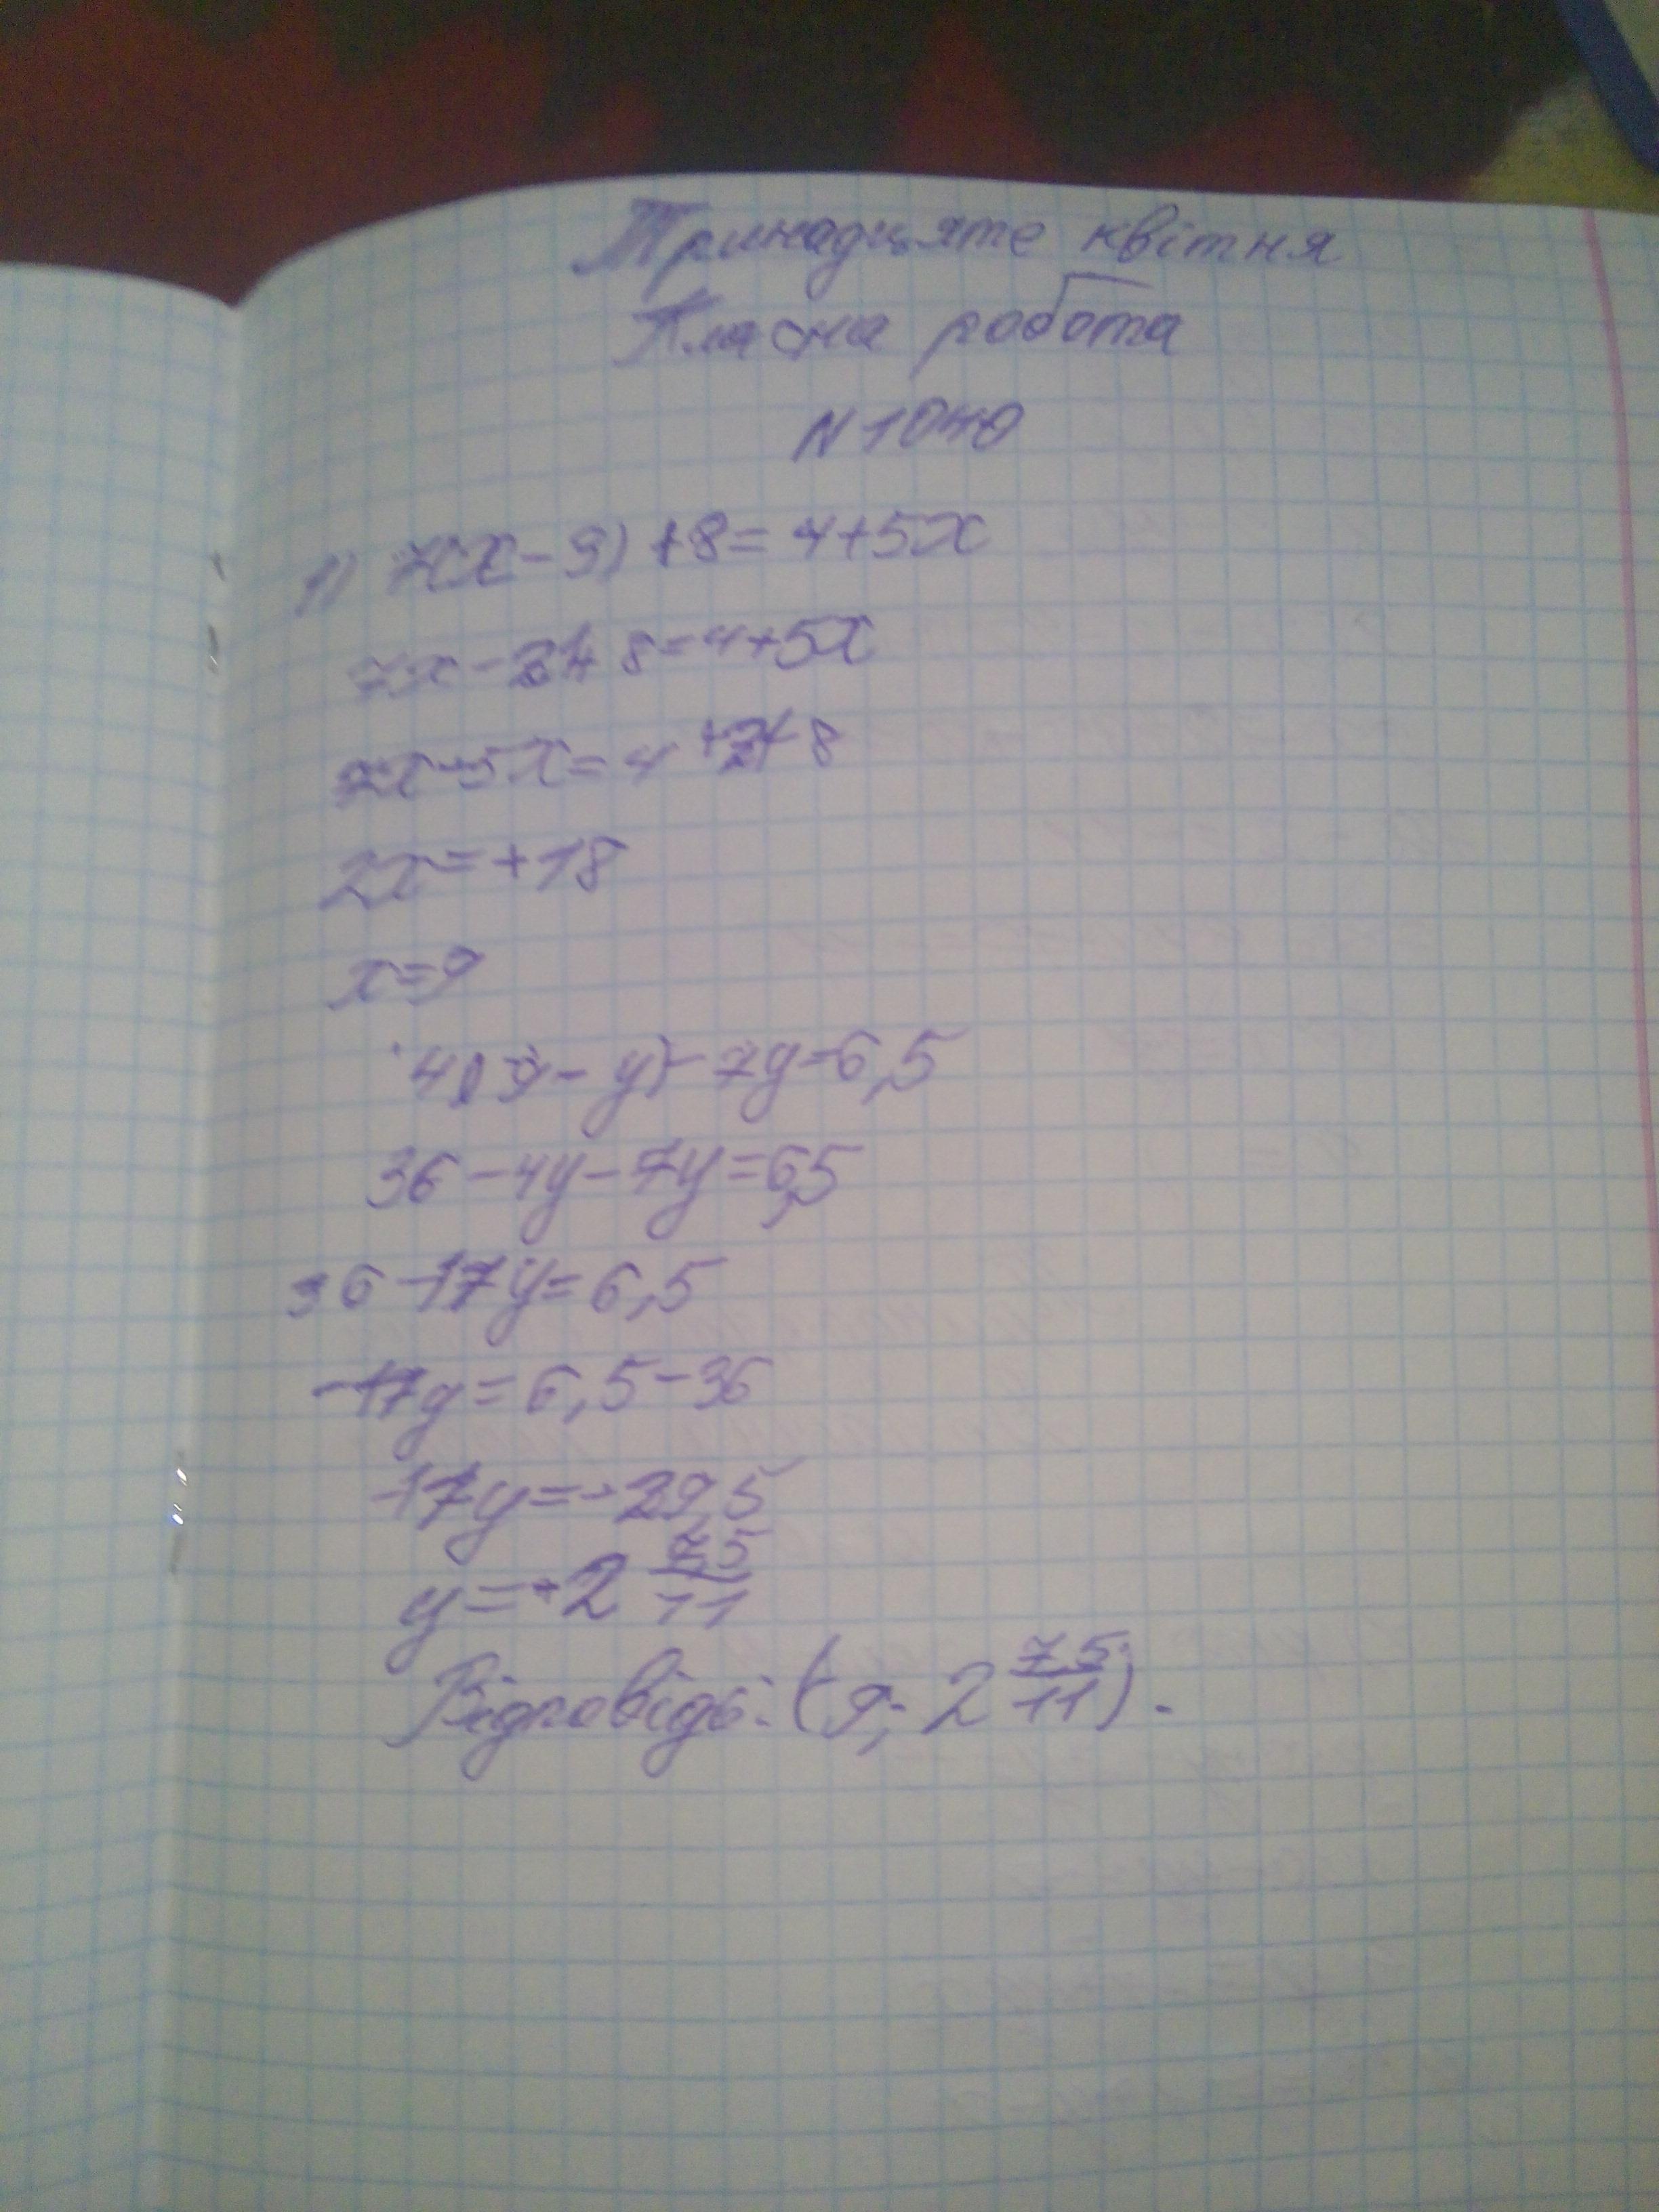 Тринадцяте квітня
Класна робота
N1040
1) 7(x-3)+8=4+5x
7x-21+8=4+5x
7x-5x=4+21-8
2x=+18
x=9
4(9-y)-7y=6,5
36-4y-7y=6,5
36-17y=6,5
-17y=6,5-36
17y=-29,5
y=-2 7,5/11
Відповідь: (9; 2 7,5/11).